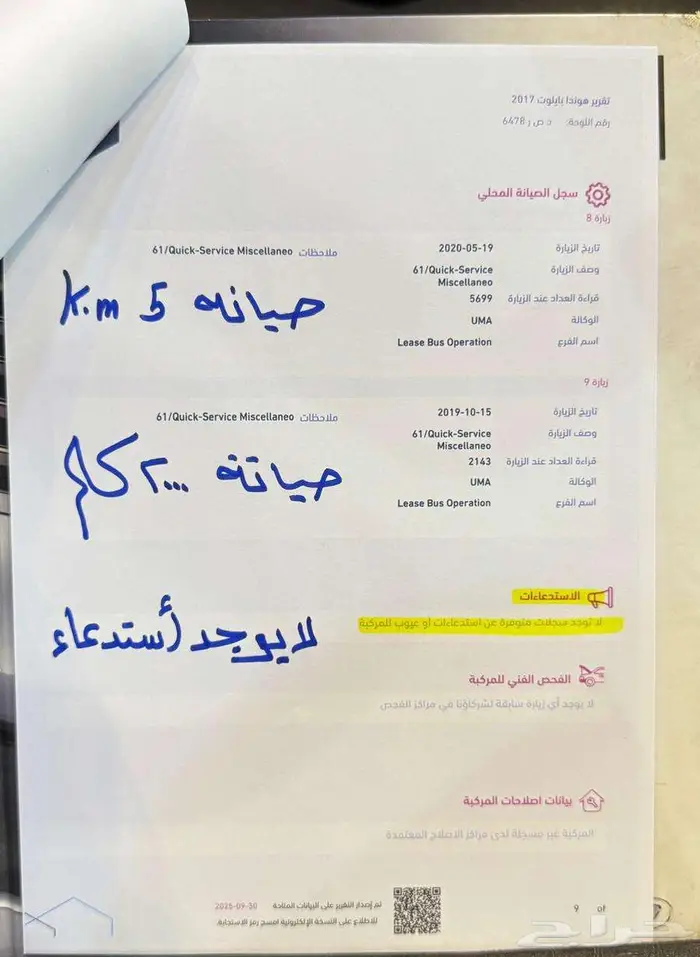 تقرير هوندا بايلوت 2017
رقم اللوحة: د ص ر 6478
سجل الصيانة المحلي
زيارة 8
تاريخ الزيارة 2020-05-19
ملاحظات 61/Quick-Service Miscellaneo
وصف الزيارة 61/Quick-Service
Miscellaneo
قراءة العداد عند الزيارة 5699
صيانه 5 K.m
الوكالة UMA
اسم الفرع Lease Bus Operation
زيارة 9
تاريخ الزيارة 2019-10-15
ملاحظات 61/Quick-Service Miscellaneo
وصف الزيارة 61/Quick-Service
Miscellaneo
قراءة العداد عند الزيارة 2143
صيانه ٢٠٠٠ كلم
الوكالة UMA
اسم الفرع Lease Bus Operation
الاستدعاءات
لا توجد سجلات متوفرة عن استدعاءات أو عيوب للمركبة
لا يوجد أستدعاء
الفحص الفني للمركبة
لا يوجد أي زيارة سابقة لشركاؤنا في مراكز الفحص
بيانات اصلاحات المركبة
المركبة غير مسجلة لدى مراكز الاصلاح المعتمدة
تم إصدار التقرير على البيانات المتاحة 2025-09-30
للاطلاع على النسخة الإلكترونية امسح رمز الاستجابة.
9 of
حراج